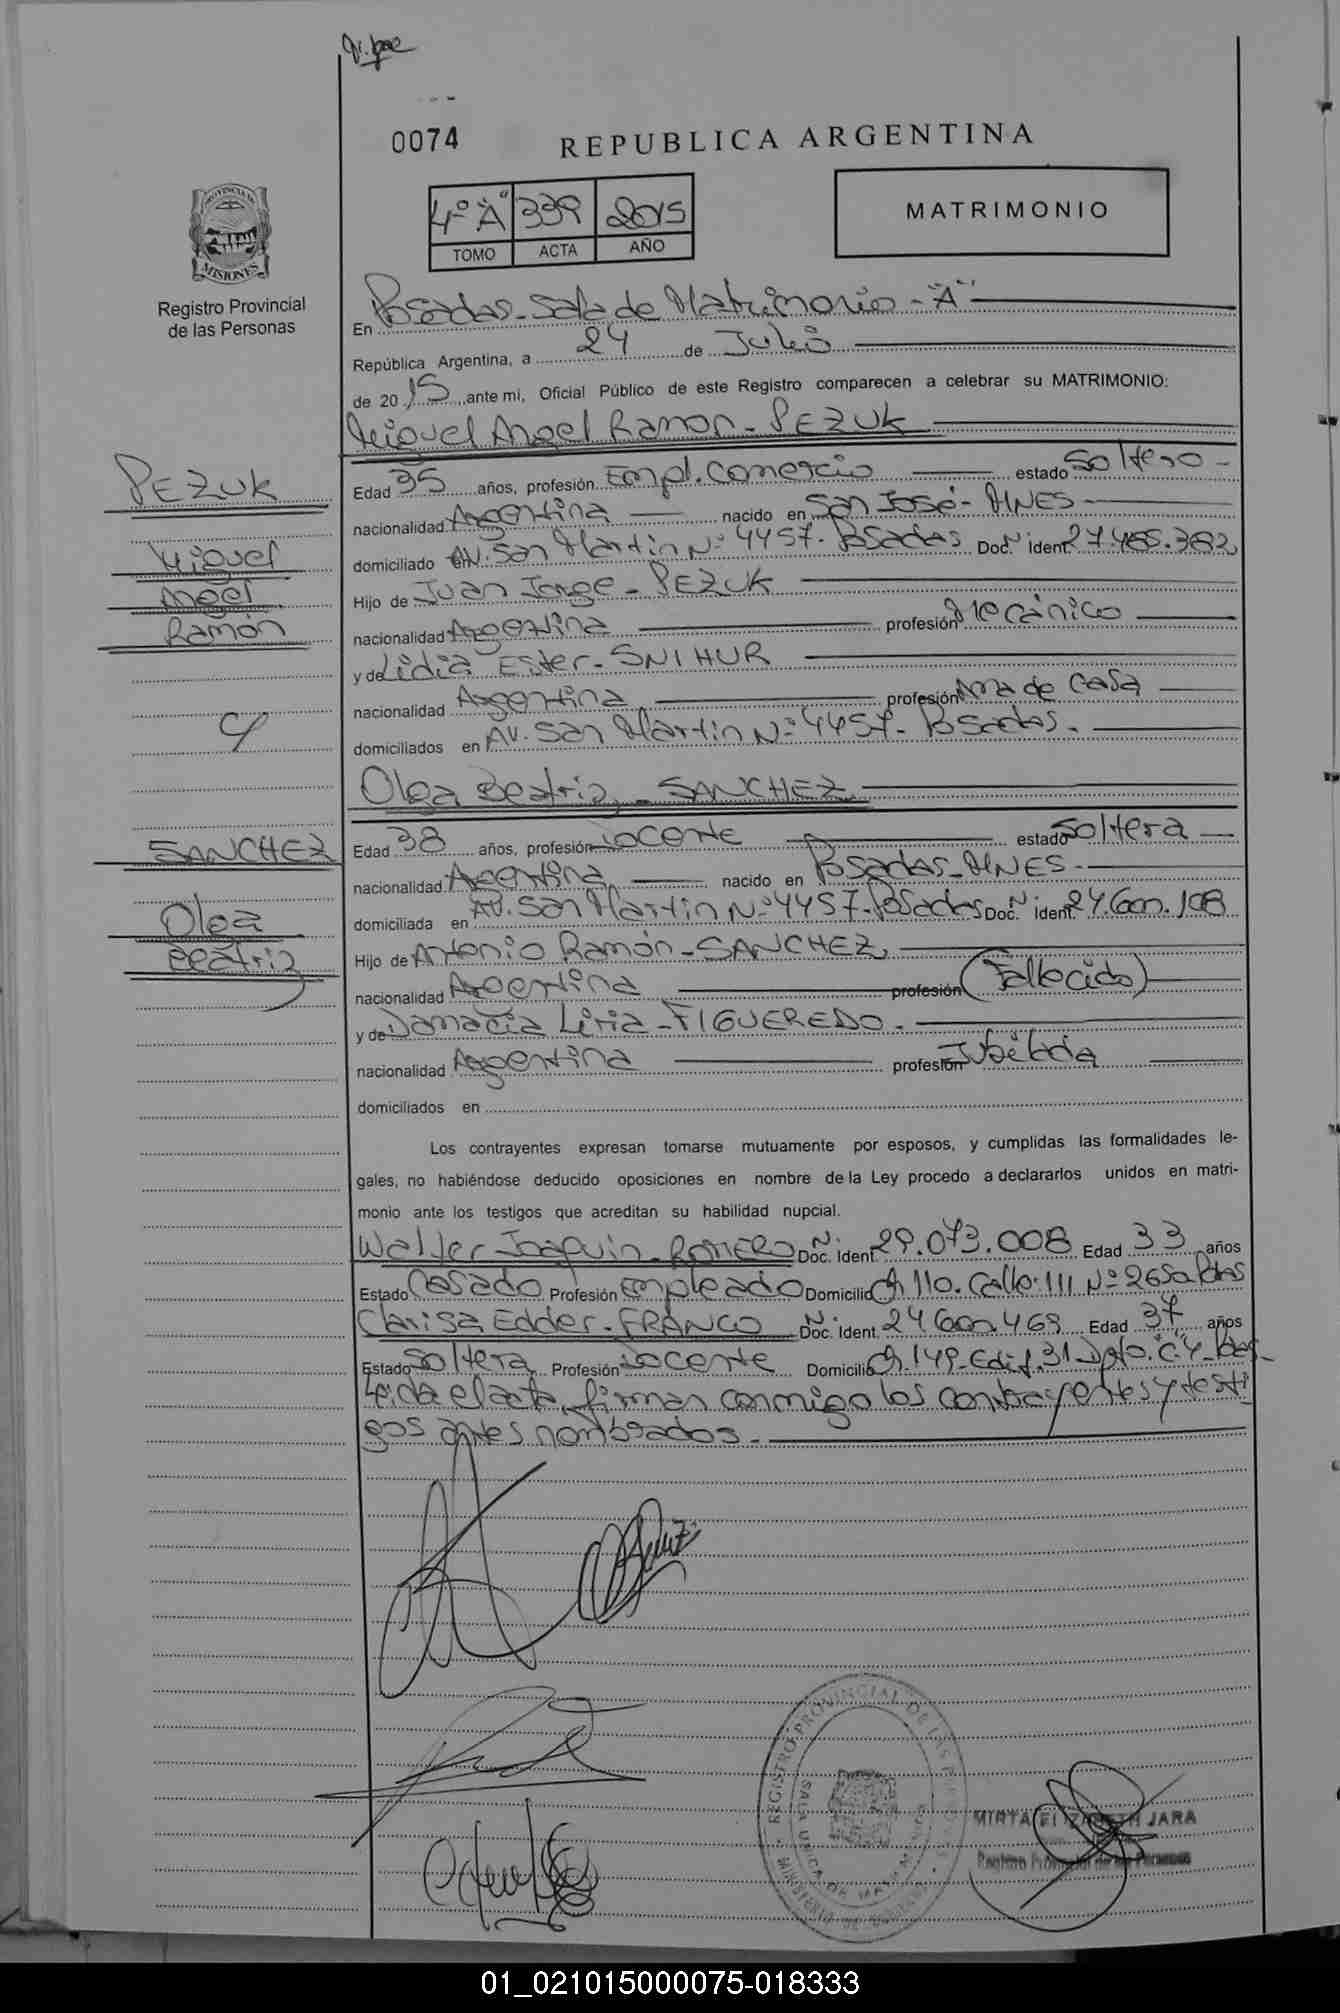 0074
REPUBLICA ARGENTINA
4º "A" 339 2015
TOMO ACTA AÑO
MATRIMONIO
PROVINCIA DE
MISIONES
Registro Provincial
de las Personas
En Posadas - Sala de Matrimonio - "A"
República Argentina, a 24 de Julio
de 2015 ante mi, Oficial Público de este Registro comparecen a celebrar su MATRIMONIO:
Miguel Angel Ramon - PEZUK
PEZUK
Miguel
Angel
Ramón
Edad 35 años, profesión Empl. Comercio estado Soltero -
nacionalidad Argentina nacido en San José - MNES
domiciliado en AV. San Martin Nº 4457 - Posadas Doc. N. ident. 27.485.382
Hijo de Juan Jorge - PEZUK
nacionalidad Argentina profesión Mecánico
y de Lidia Ester - SNIHUR
nacionalidad Argentina profesión Ama de casa
domiciliados en AV. San Martin Nº 4457 - Posadas.
Olga Beatriz - SANCHEZ
SANCHEZ
Olga
Beatriz
Edad 38 años, profesión Docente estado Soltera
nacionalidad Argentina nacido en Posadas - MNES
domiciliada en AV. San Martin Nº 4457 - Posadas Doc. N. ident. 24.600.108
Hijo de Antonio Ramón - SANCHEZ
nacionalidad Argentina profesión (Fallecido)
y de Damacia Liria - FIGUEREDO.
nacionalidad Argentina profesión Jubilada
domiciliados en
Los contrayentes expresan tomarse mutuamente por esposos, y cumplidas las formalidades le-
gales, no habiéndose deducido oposiciones en nombre de la Ley procedo a declararlos unidos en matri-
monio ante los testigos que acreditan su habilidad nupcial.
Walter Joaquin - ROMERO Doc. N. Ident. 29.073.008 Edad 33 años
Estado Casado Profesión Empleado Domicilio Ch 110. Calle 111 Nº 2650 Pdas
Clarisa Edder - FRANCO Doc. N. Ident. 24.600.469 Edad 37 años
Estado Soltera Profesión Docente Domicilio Ch. 149 - Edif. 31 Dpto. "C" 4 - Pdas -
Leida el acta, firman conmigo los contrayentes y testi
gos antes nombrados. -
REGISTRO PROVINCIAL DE LAS PERSONAS
MINISTERIO DE GOBIERNO
MIRTA ELIZABETH JARA
Registro Provincial de las Personas
01_021015000075-018333